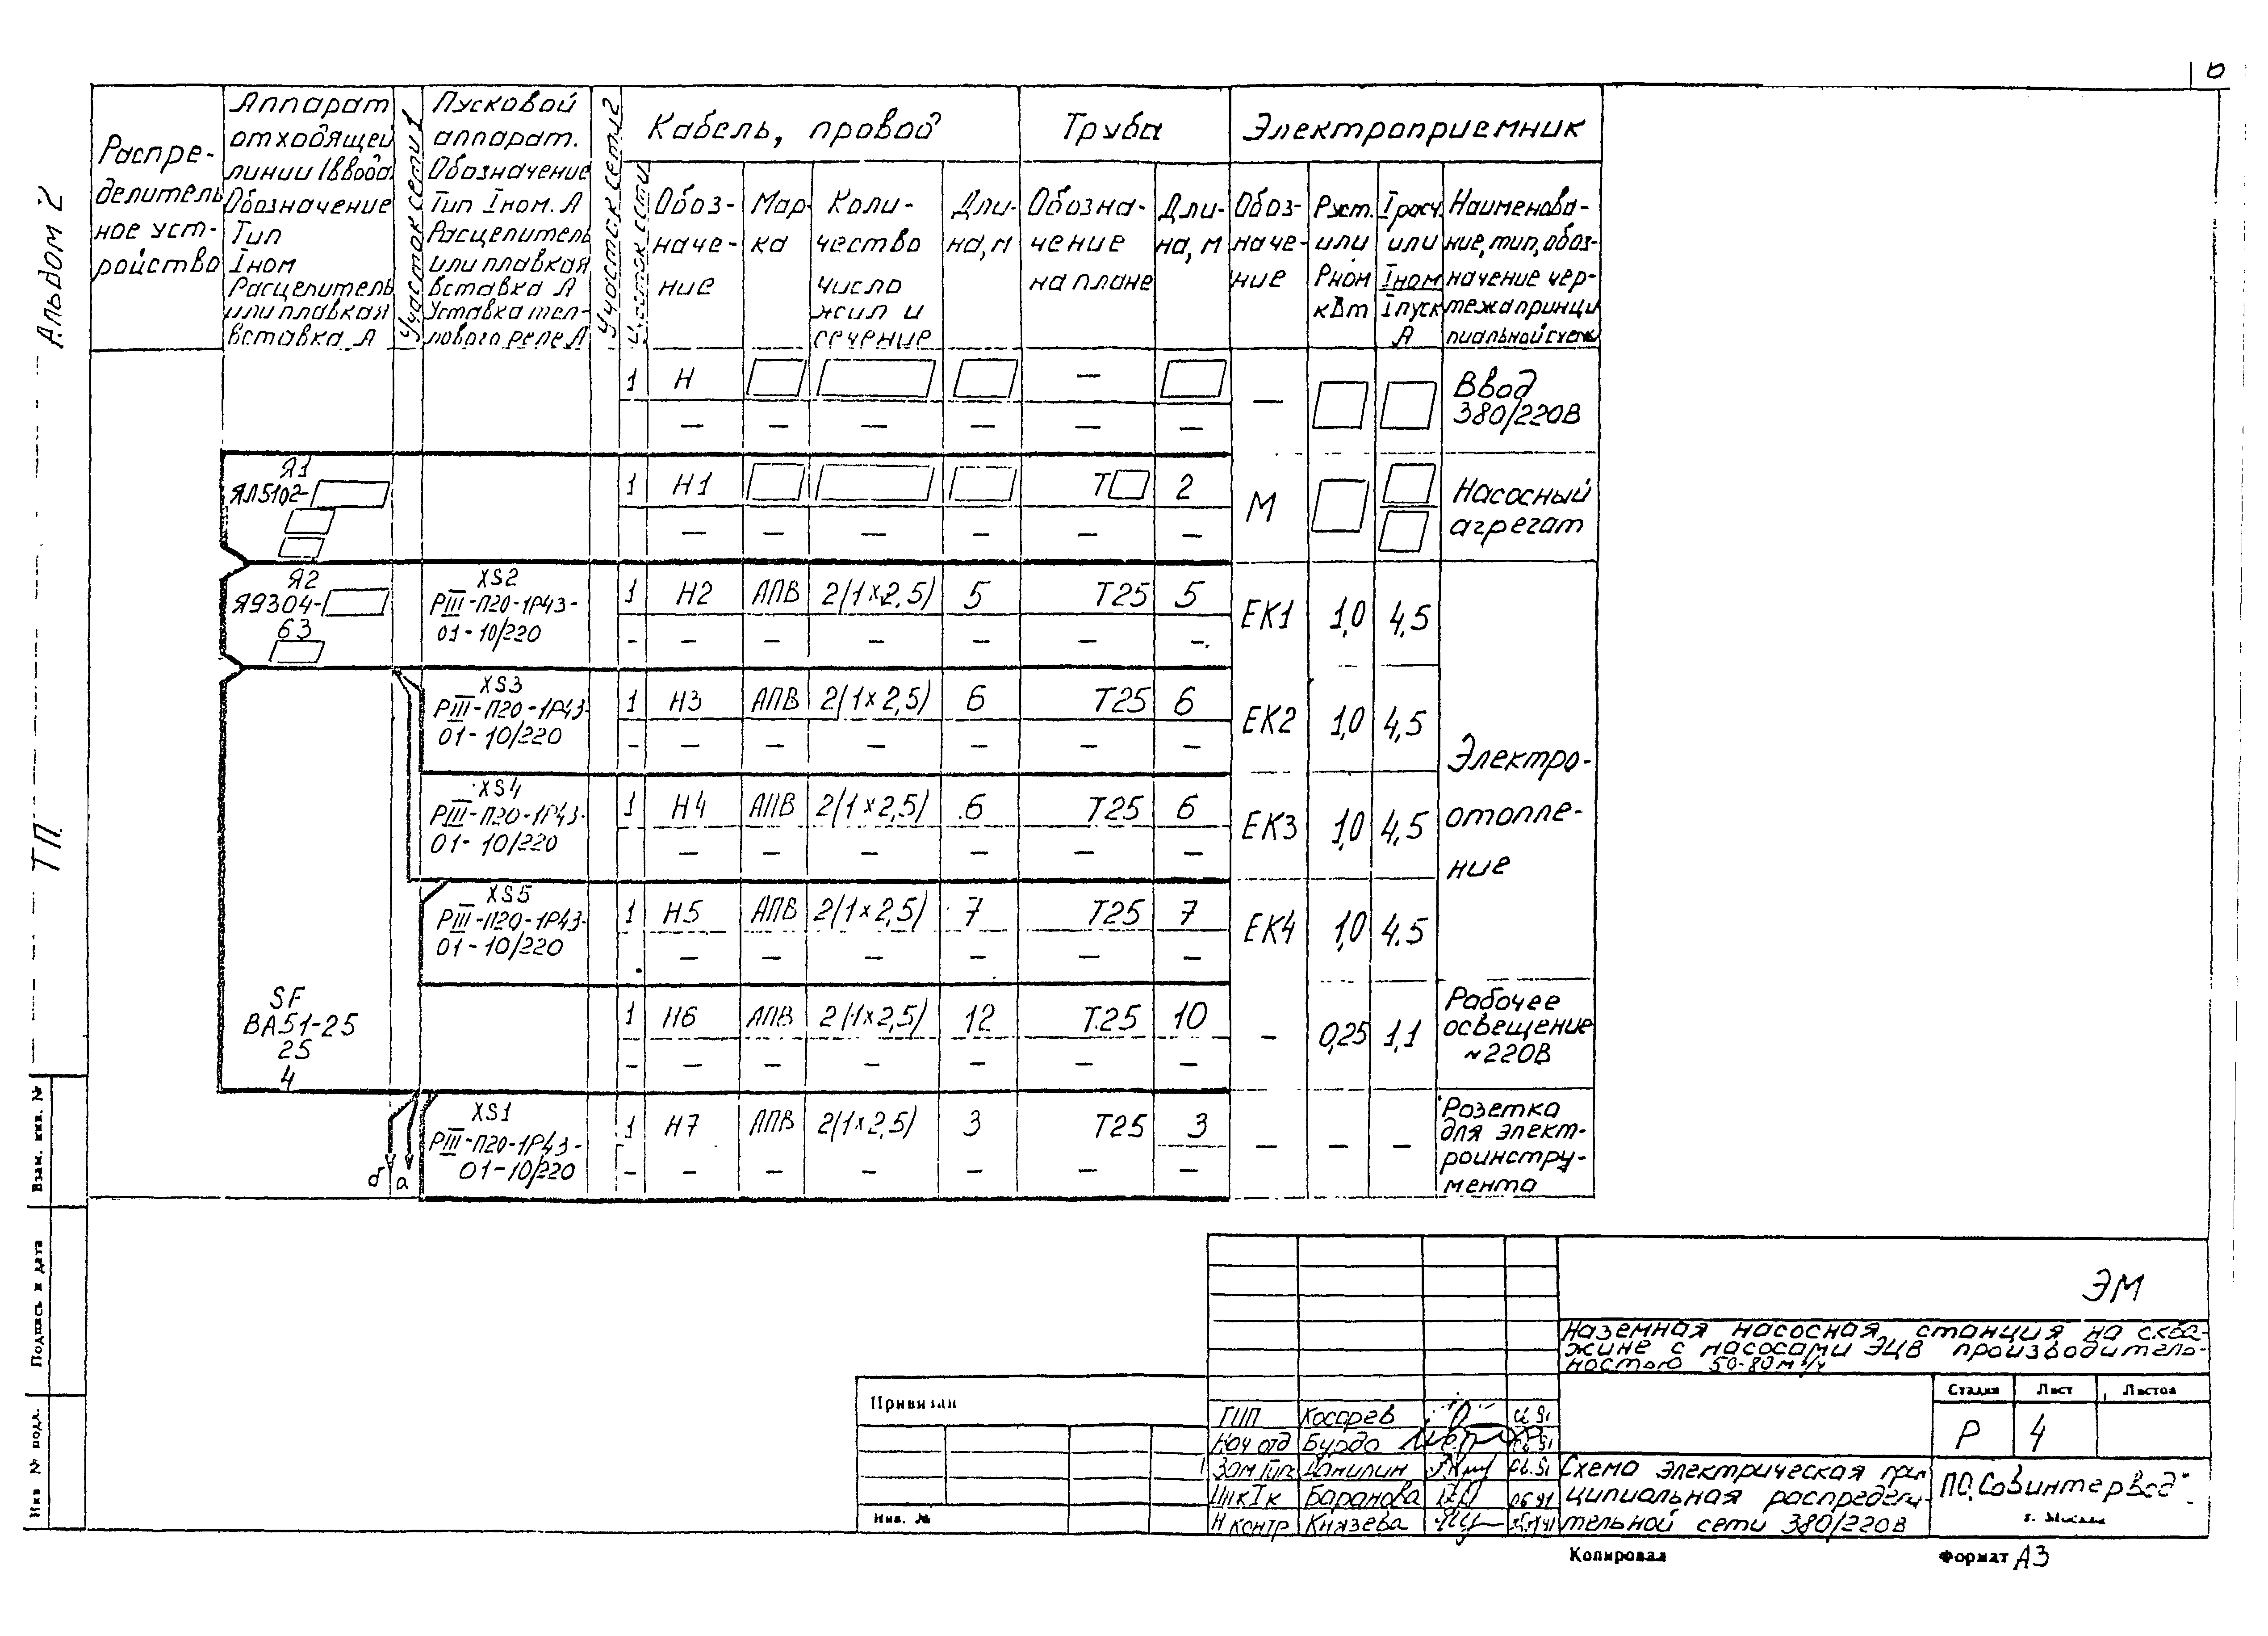 Альбом 2
ТП
Распре-
делитель
ное уст-
ройство
Аппарат
отходящей
линии (ввода
Обозначение
Тип
Iном
Расцепитель
или плавкая
вставка А
Участок сети 1
Пусковой
аппарат.
Обозначение
Тип Iном. А
Расцепитель
или плавкая
вставка А
Уставка теп-
лового реле А
Участок сети 2
Участок сети
Кабель, провод
Обоз-
наче-
ние
Мар-
ка
Коли-
чество
число
жил и
сечение
Дли-
на, м
Труба
Обозна-
чение
на плане
Дли-
на, м
Электроприемник
Обоз-
наче-
ние
Руст.
или
Рном
кВт
Iрасч.
или
Iном
Iпуск
А
Наименова-
ние, тип, обоз-
начение чер-
тежа принци
пиальной схемы
1 Н –
– – – – – –
–
Ввод
380/220В
Я1
ЯЛ5102-
1 Н1 Т 2
– – – – – –
М
Насосный
агрегат
Я2
Я9304-
63
XS2
РШ-П20-1Р43-
01-10/220
1 Н2 АПВ 2(1×2,5) 5 Т25 5
– – – – – – –
ЕК1 1,0 4,5
XS3
РШ-П20-1Р43-
01-10/220
1 Н3 АПВ 2(1×2,5) 6 Т25 6
– – – – – – –
ЕК2 1,0 4,5
Электро-
отопле-
ние
XS4
РШ-П20-1Р43-
01-10/220
1 Н4 АПВ 2(1×2,5) 6 Т25 6
– – – – – –
ЕК3 1,0 4,5
XS5
РШ-П20-1Р43-
01-10/220
1 Н5 АПВ 2(1×2,5) 7 Т25 7
– – – – – –
ЕК4 1,0 4.5
SF
ВА51-25
25
4
1 Н6 АПВ 2(1×2,5) 12 Т.25 10
– – – – – – –
– 0,25 1,1
Рабочее
освещение
~220В
б а
XS1
РШ-П20-1Р43-
01-10/220
1 Н7 АПВ 2(1×2,5) 3 Т25 3
– – – – – – –
– – –
Розетка
для элект-
роинстру-
мента
Взам. инв. №
Подпись и дата
Инв № подл.
ЭМ
Наземная насосная станция на сква-
жине с насосами ЭЦВ производитель-
ностью 50-80 м³/ч
Привязан
Инв. №
ГИП Косарев 06.91
Нач отд Бурда 06.91
Зам Гип Данилин 06.91
Инж I к Баранова 06 91
Н контр Князева
Стадия Лист Листов
Р 4
Схема электрическая прин
ципиальная распредели-
тельной сети 380/220В
ПО „Совинтервод"
г. Москва
Копировал
Формат А3